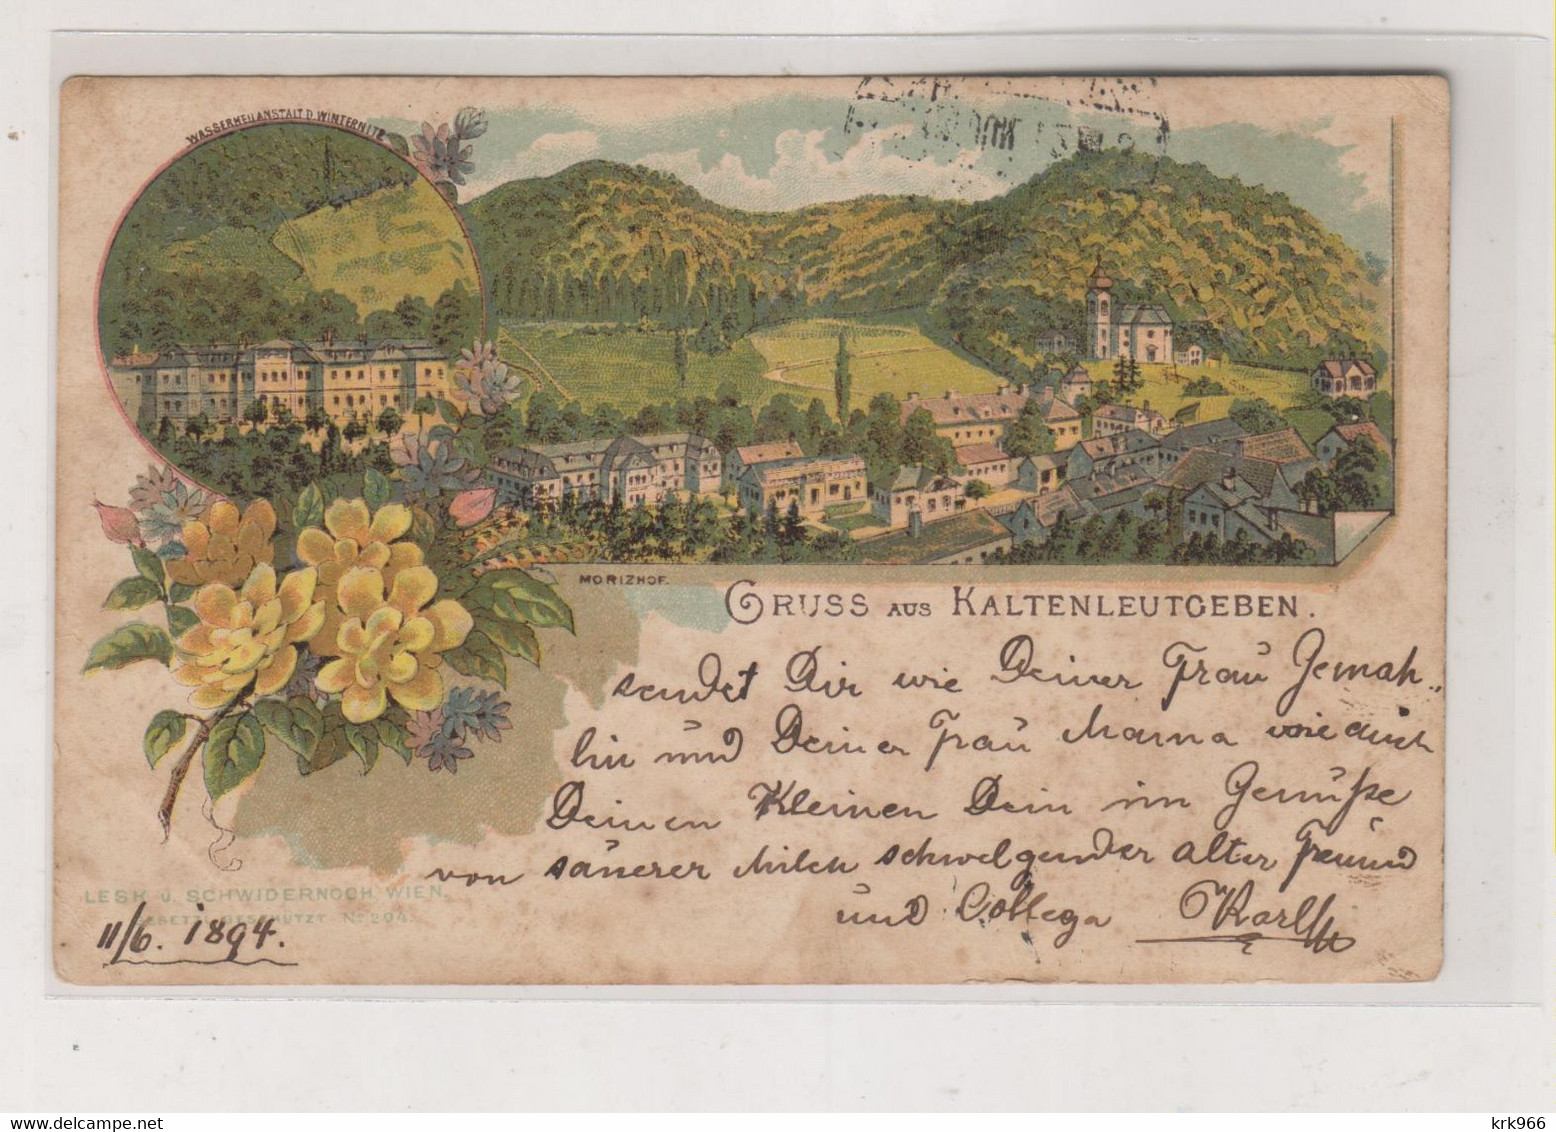 WASSERHEILANSTALT D. WINTERNITZ
MORIZHOF.
GRUSS AUS KALTENLEUTGEBEN.
sendet Dir wie Deiner Frau Gemah„
lin und Deiner Frau Mama wie auch
Deinen Kleinen Dein im Genuße
von säuerer Milch schwelgender alter Freund
und College Karl
LESK U. SCHWIDERNOCH, WIEN.
GESETZL. GESCHÜTZT No 204.
11/6. 1894.
krk966